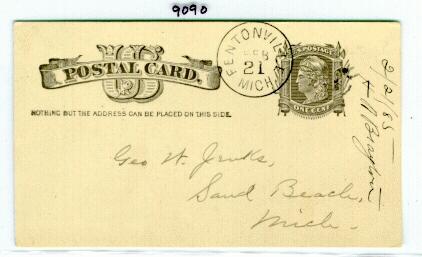 9090
US
POSTAL CARD.
NOTHING BUT THE ADDRESS CAN BE PLACED ON THIS SIDE.
FENTONVILLE
FEB
21
MICH.
U.S. POSTAGE
ONE CENT
Geo W. Jenks,
Sand Beach,
Mich.
2/21/85
Brayton